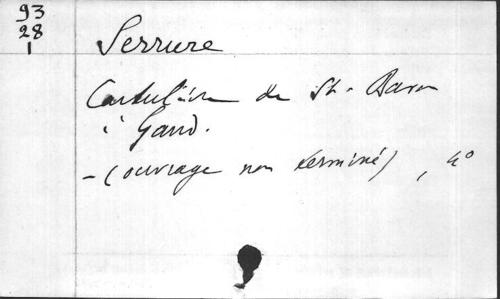 93
28
1
Serrure
Cartulaire de St. Bavon
à Gand.
- (ouvrage non terminé), 4°